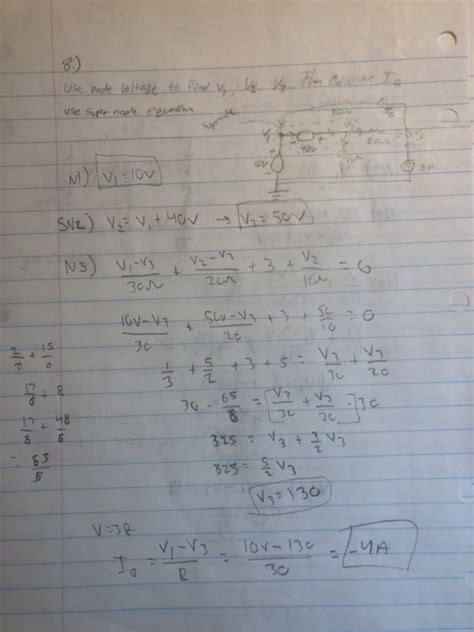 8.)
Use node voltage to find V₁, V₂, V₃. Then calculate I₀
Use super node equation
Supernode
30Ω
V₁
40V
20Ω
V₃
10V
10Ω
3A
N1) V₁=10V
SN2) V₂ = V₁ + 40V → V₂ = 50V
N3) (V₁-V₃)/30Ω + (V₂-V₃)/20Ω + 3 + V₂/10Ω = 0
(10V-V₃)/30 + (50V-V₃)/20 + 3 + 50/10 = 0
1/3 + 5/2 + 3 + 5 = V₃/30 + V₃/20
30 · 65/6 = [V₃/30 + V₃/20] 30
325 = V₃ + 3/2 V₃
325 = 5/2 V₃
V₃ = 130
17/6 + 8
17/6 + 48/6
= 65/6
V=IR
I₀ = (V₁-V₃)/R = (10V-130)/30 = -4A